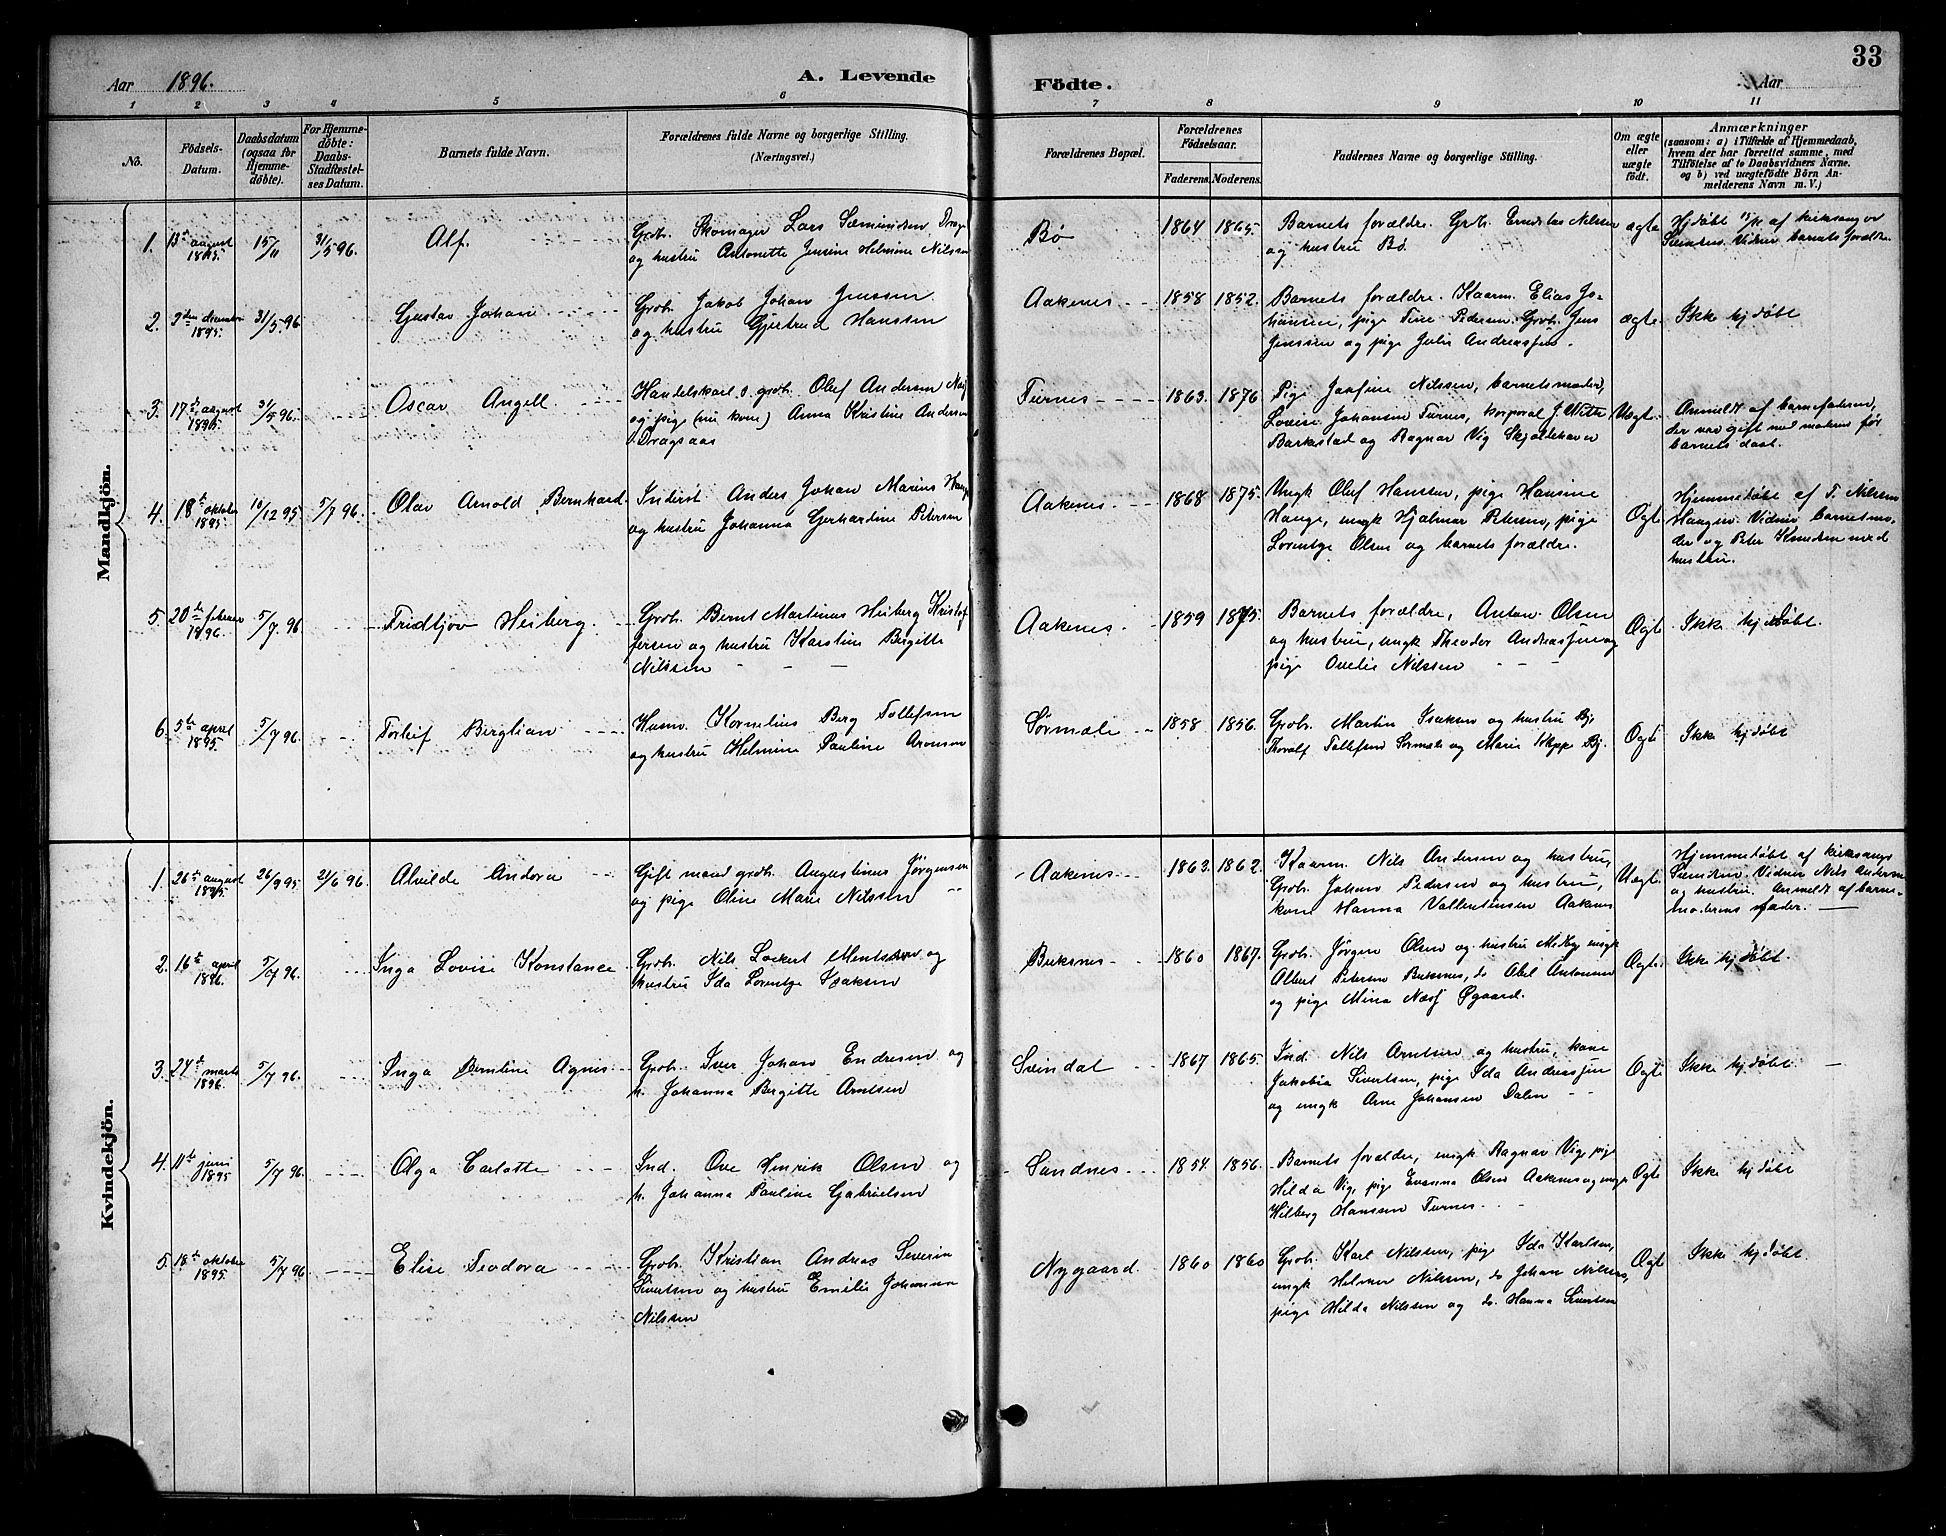 Aar 1896.
A. Levende
Födte.
Aar
33
1 2 3 4 5 6 7 8 9 10 11
No.
Födsels-
Datum.
Daabsdatum
(ogsaa for
Hjemme-
døbte).
For Hjemme-
døbte:
Daabs-
Stadfæstel-
ses Datum.
Barnets fulde Navn.
Forældrenes fulde Navne og borgerlige Stilling.
(Næringsvei.)
Forældrenes Bopæl.
Forældrenes
Födselsaar.
Faderens. Moderens.
Faddernes Navne og borgerlige Stilling.
Om ægte
eller
uægte
födt.
Anmærkninger
(saasom: a) i Tilfælde af Hjemmedaab,
hvem der har forrettet samme, med
Tilföielse af to Daabsvidners Navne.
og b) ved uægtefödte Börn An-
melderens Navn m. V.)
Mandkjön.
1. 13de august 1895. 15/11 31/5 96. Alf.
Grdb. Skomager Lars Sæmundsen
og hustru Antonette Jensine Helmine Nilssen
Bø 1864 1865.
Barnets forældre. Grb. Nilssen
og hustru Bø
ægte
Hjdøbt af kirksanger
Vidner barnets forældre.
2. december 1895. 31/5 96 Gustav Johan
Grdb. Jakob Johan Jenssen
og hustru Gjertrud Hanssen
Aakenes 1858 1852.
Barnets forældre. Kaarm. Elias Jo-
hansen, pige Tine Pedersen. Grdb. Jens
Jenssen og pige Julie Andreassen.
ægte.
Ikke hjdøbt
3. 17de august 1895. 31/5 96. Oscar Angell
Handelskarl s. grdb. Oluf Andersen
og pige (nu kone) Anna Kristine Andersen
Dragsaas
Turnes 1863. 1876
Pige Josefine Nilssen, barnets moder,
Lovise Johansen Turnes, korporal J. Witte
Barkstad og Ragnar Vig Skjoldehavn
Uægt.
Anmeldt af barnefaderen,
der var gift med moderen før
barnets daab.
4. 18de oktober 1895. 10/12 95 5/7 96. Olav Arnold Bernhard.
Inderst. Anders Johan Marius
og hustru Johanna Gerhardine Petersen
Aakenes. 1868 1875.
Ungk. Oluf Hanssen, pige Hansine
Hauge, ungk Hjalmar Petersen, pige
Lorentze Olsen og barnets forældre.
Ogt
Hjemmedøbt af T. Nilssen
Vidner barnets mo-
der og Peter Knudsen med
hustru.
5. 20de februar 1896. 5/7 96 Fridtjov Heiberg.
Grdb. Bernt Martinus Heiberg Kristof
fersen og hustru Karstine Bergitte
Nilssen
Aakenes. 1859 1875.
Barnets forældre, Anton Olsen
og hustru, ungk Theodor Andreassen og
pige Ovelie Nilssen
Ogte
Ikke hjdøbt.
6. 5te april 1895 5/7 96. Torleif Berglian
Husm. Kornelius Berg Tollefsen
og hustru Helmine Pauline Aronsen
Sørmæle 1858 1856.
Grdb. Martin Isaksen og hustru Bj.
Thoralf Tollefsen Sørmæle og Marie Klippe Bj.
Ogte
Ikke hjdøbt
Kvindekjön.
1. 26de august 1895. 26/9 95 21/6 96. Alvilde Andora
Gift mand grdb. Augustinus Jørgensen
og pige Oline Marie Nilssen
Aakenes 1863. 1862.
Kaarm. Nils Andersen og hustru,
Grdb. Johan Pedersen og hustru,
kone Hanna Vallentinsen Aaknes
Uægt.
Hjemmedøbt af kirkesang.
Vidner Nils Andersen
og hustru. Anmeldt af barne-
moderens fader.
2. 16de april 1896. 5/7 96. Inga Lovise Konstance
Grdb. Nils Lockert Mentsen og
hustru Ida Lorentze Isaksen
Buksnes 1860 1867.
Grdb. Jørgen Olsen og hustru Medby, ungk
Albert Petersen Buksnes, do Abel Antonsen
og pige Mina Næss Øgaard.
Ogte.
Ikke hjdøbt.
3. 24de marts 1896. 5/7 96. Inga Berntine Agnes
Grdb. Iver Johan Endresen og
h. Johanna Bergitte Arntsen
Svindal 1867 1865.
Ind. Nils Arntsen og hustru, kone
Jakobia Sivertsen, pige Ida Andreassen
og ungk Arne Johansen Dalen
Ogte
Ikke hjdøbt.
4. 11te juni 1895 5/7 96. Olga Carlotte
Ind. Ove Henrik Olsen og
h. Johanna Pauline Gabrielsen
Sandnes 1854. 1856.
Barnets forældre, ungk Ragnar Vig, pige
Hilda Vig, pige Evenna Olsen Aaknes og ungk
Wilberg Hansen Turnes.
Ogte
Ikke hjdøbt
5. 18de oktober 1895. 5/7 96 Elise Teodora
Grdb. Kristian Andreas Severin
Sivertsen og hustru Emilie Johanna
Nilssen
Nygaard. 1860 1860
Grdb. Karl Nilssen, pige Ida Karlsen,
ungk Helmer Nilssen, do Johan Nilssen,
pige Hilda Nilssen og do. Hanna Sivertsen
Ogte
Ikke hjdøbt.